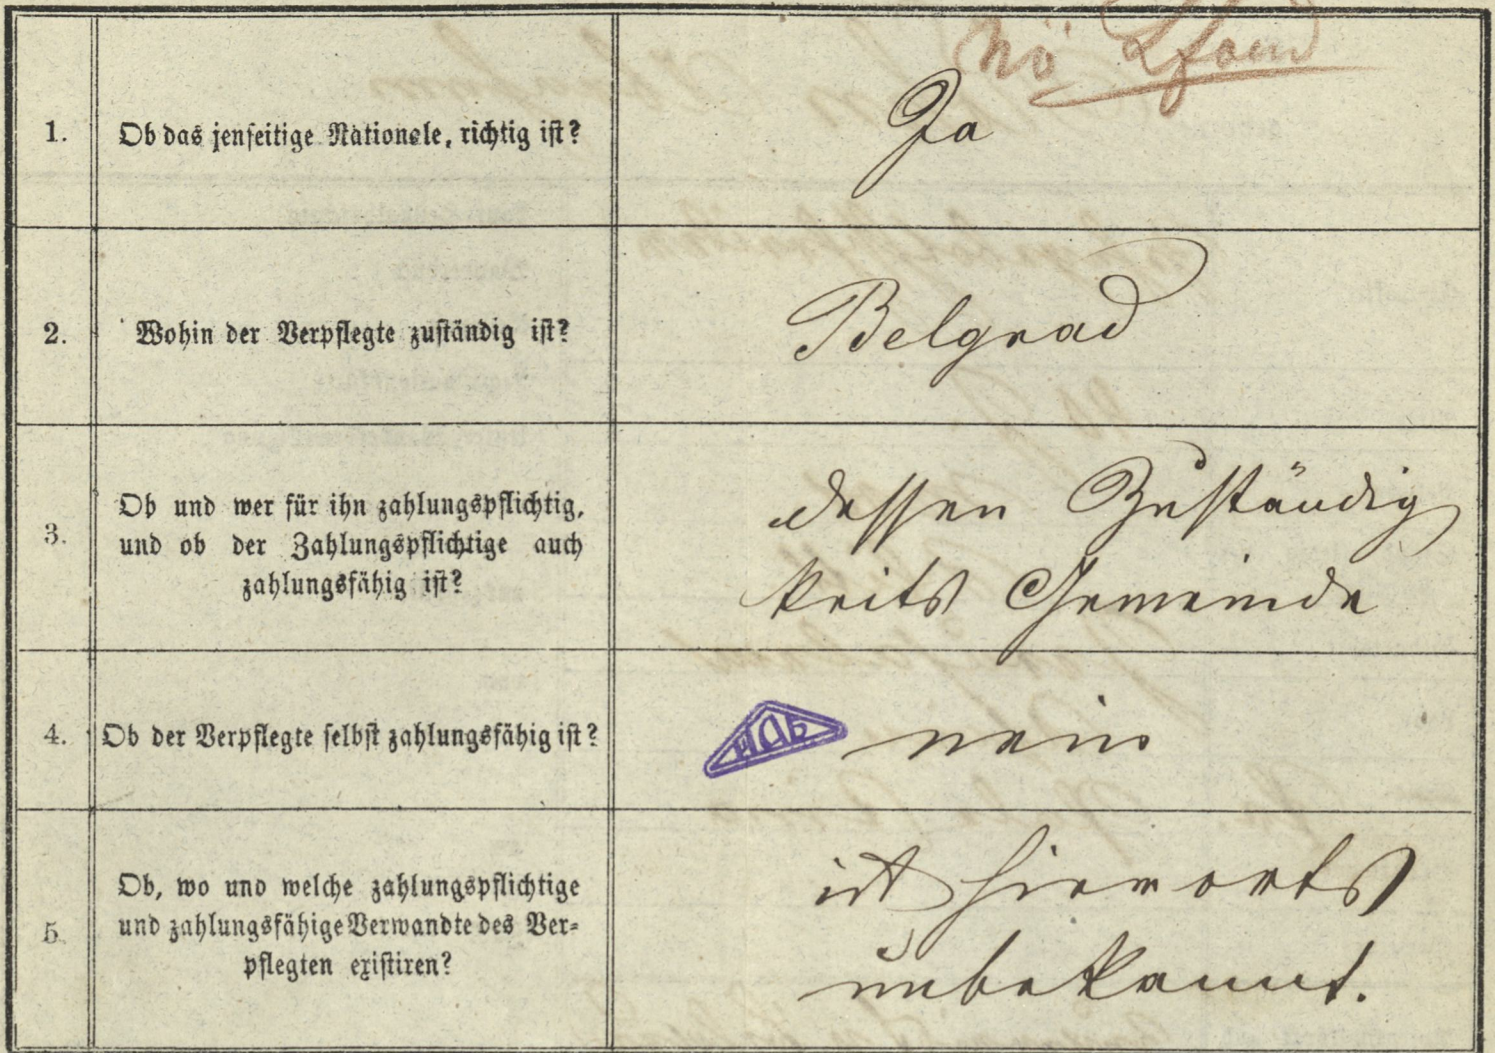 nö Lfond
1. Ob das jenseitige Nationale, richtig ist? Ja
2. Wohin der Verpflegte zuständig ist? Belgrad
3. Ob und wer für ihn zahlungspflichtig,
und ob der Zahlungspflichtige auch
zahlungsfähig ist?
dessen Zuständig
keits Gemeinde
4. Ob der Verpflegte selbst zahlungsfähig ist? nein
5. Ob, wo und welche zahlungspflichtige
und zahlungsfähige Verwandte des Ver-
pflegten existiren?
ist hierorts
unbekannt.